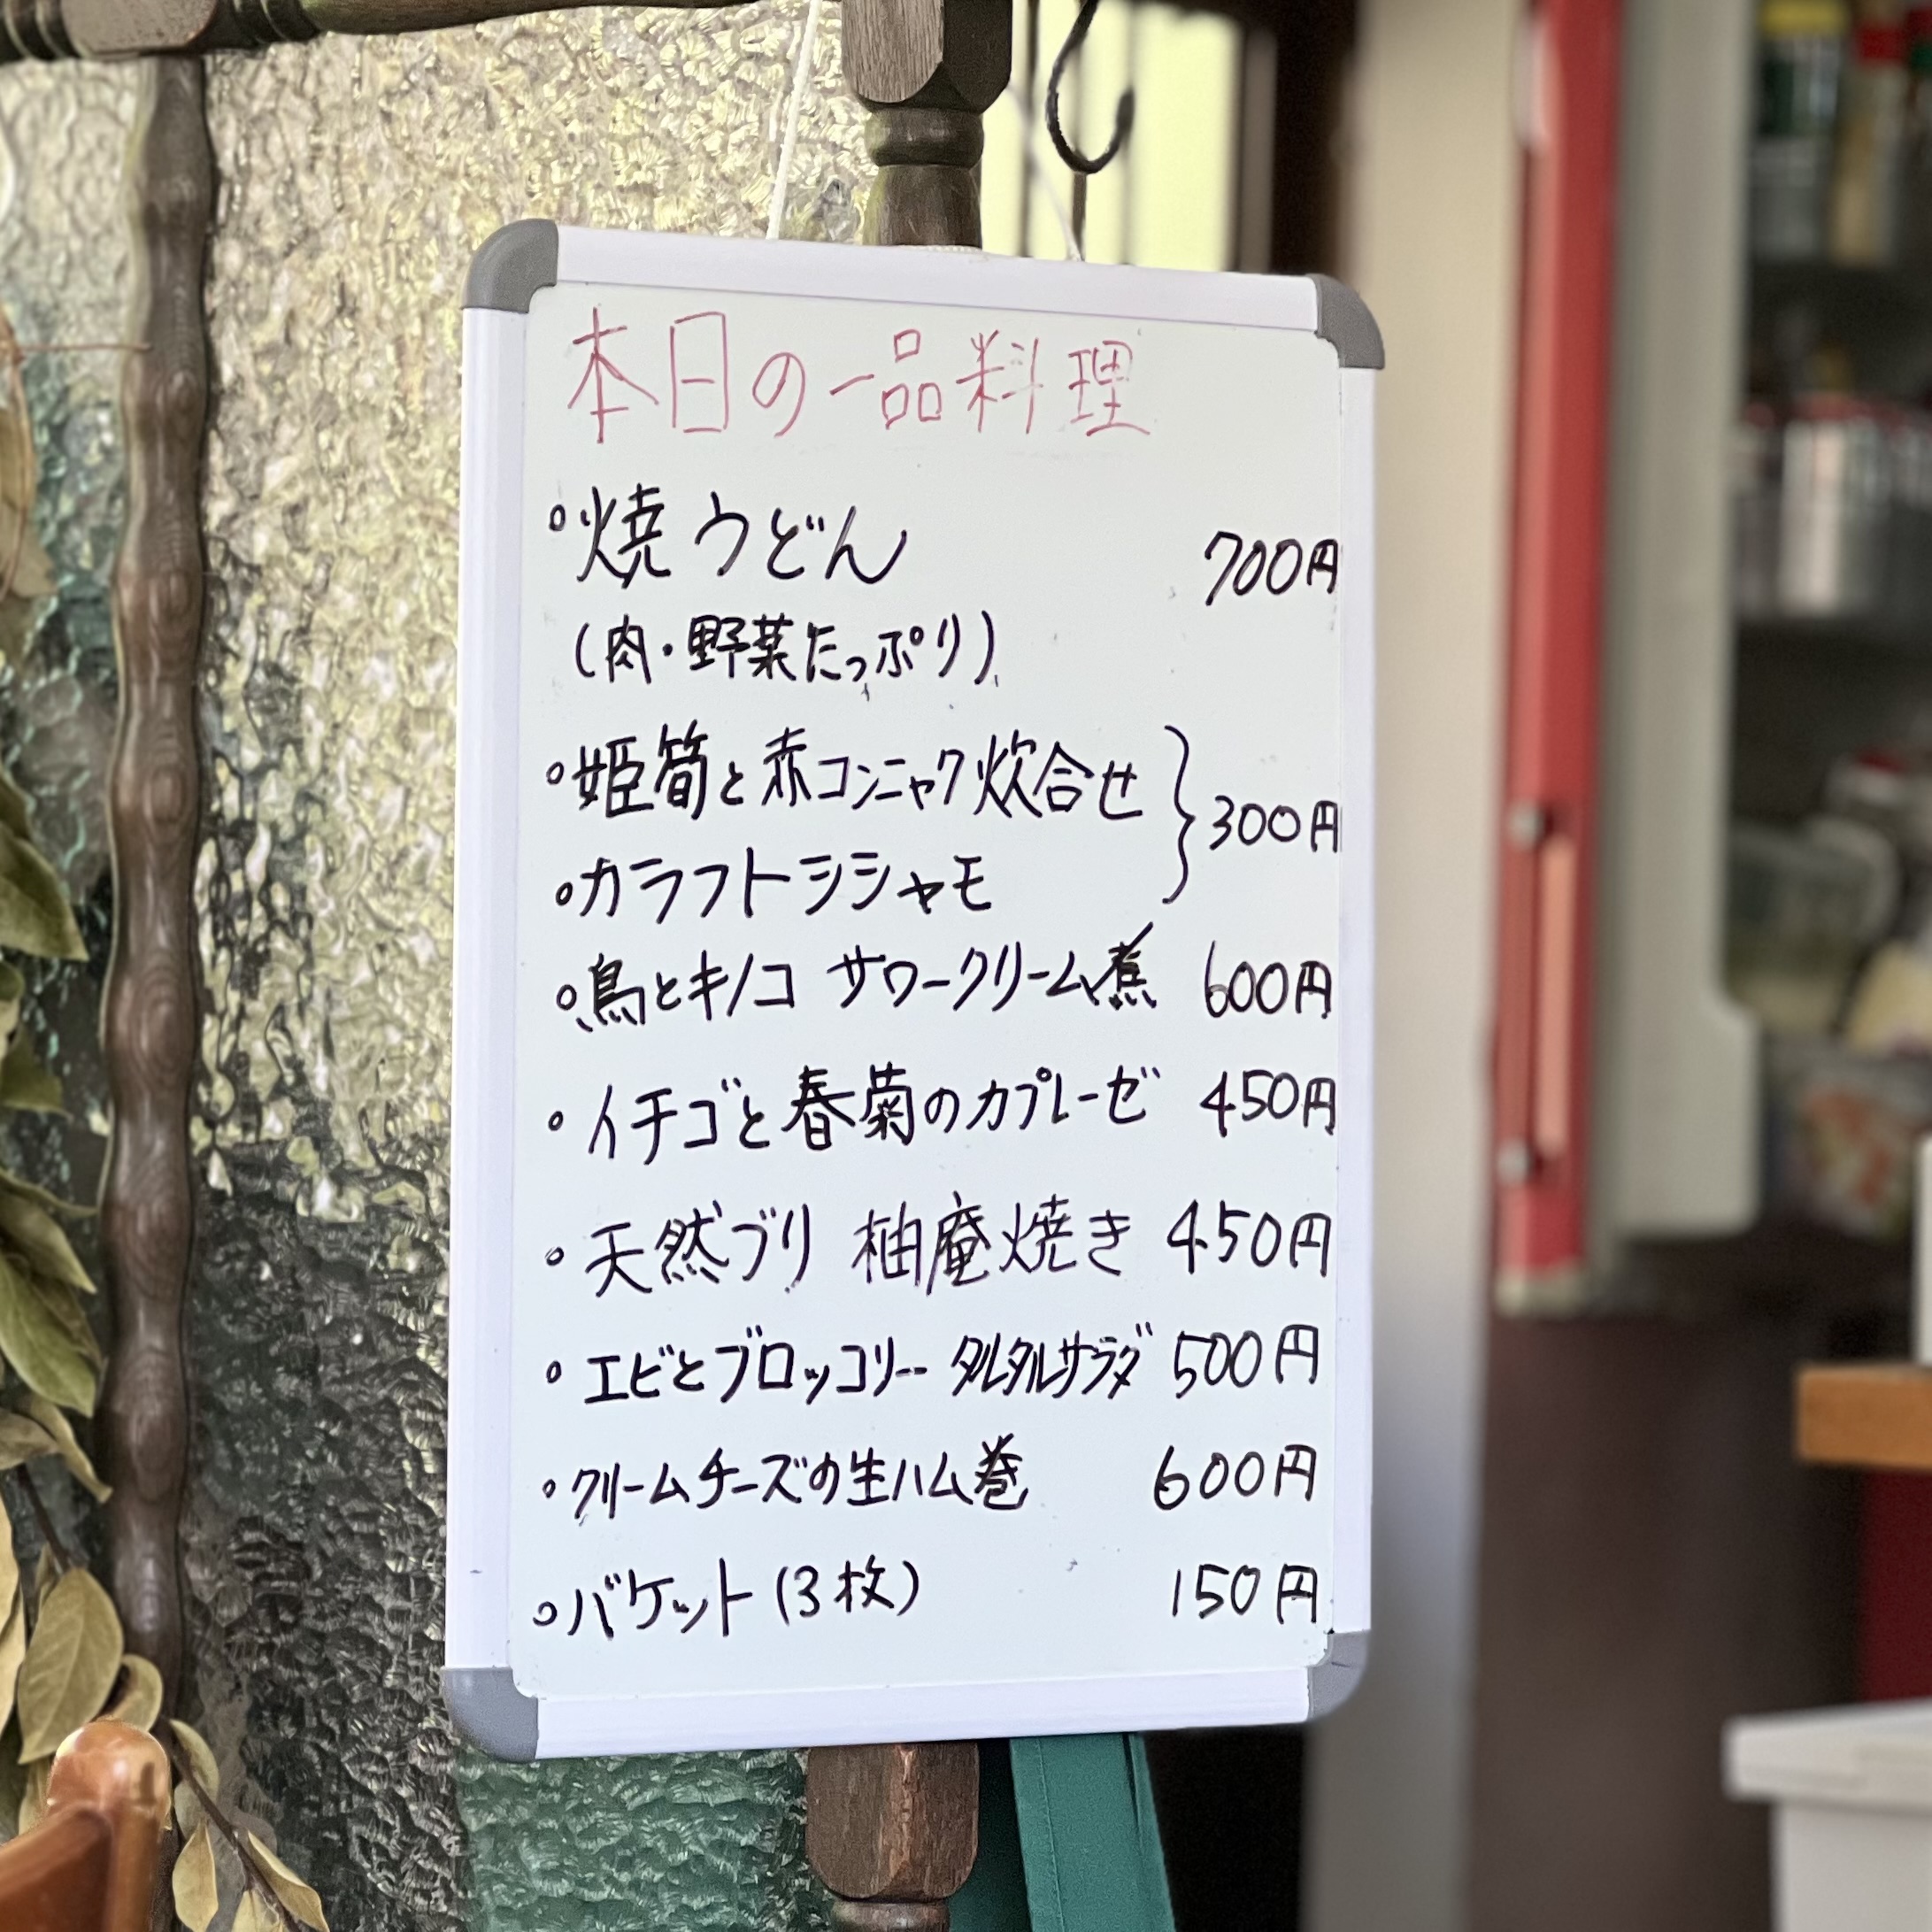 本日の一品料理
焼うどん 700円
(肉・野菜たっぷり)
姫筍と赤コンニャク炊合せ
300円
カラフトシシャモ
鳥とキノコ サワークリーム煮 600円
イチゴと春菊のカプレーゼ 450円
天然ブリ 柚庵焼き 450円
エビとブロッコリー タルタルサラダ 500円
クリームチーズの生ハム巻 600円
バケット(3枚) 150円